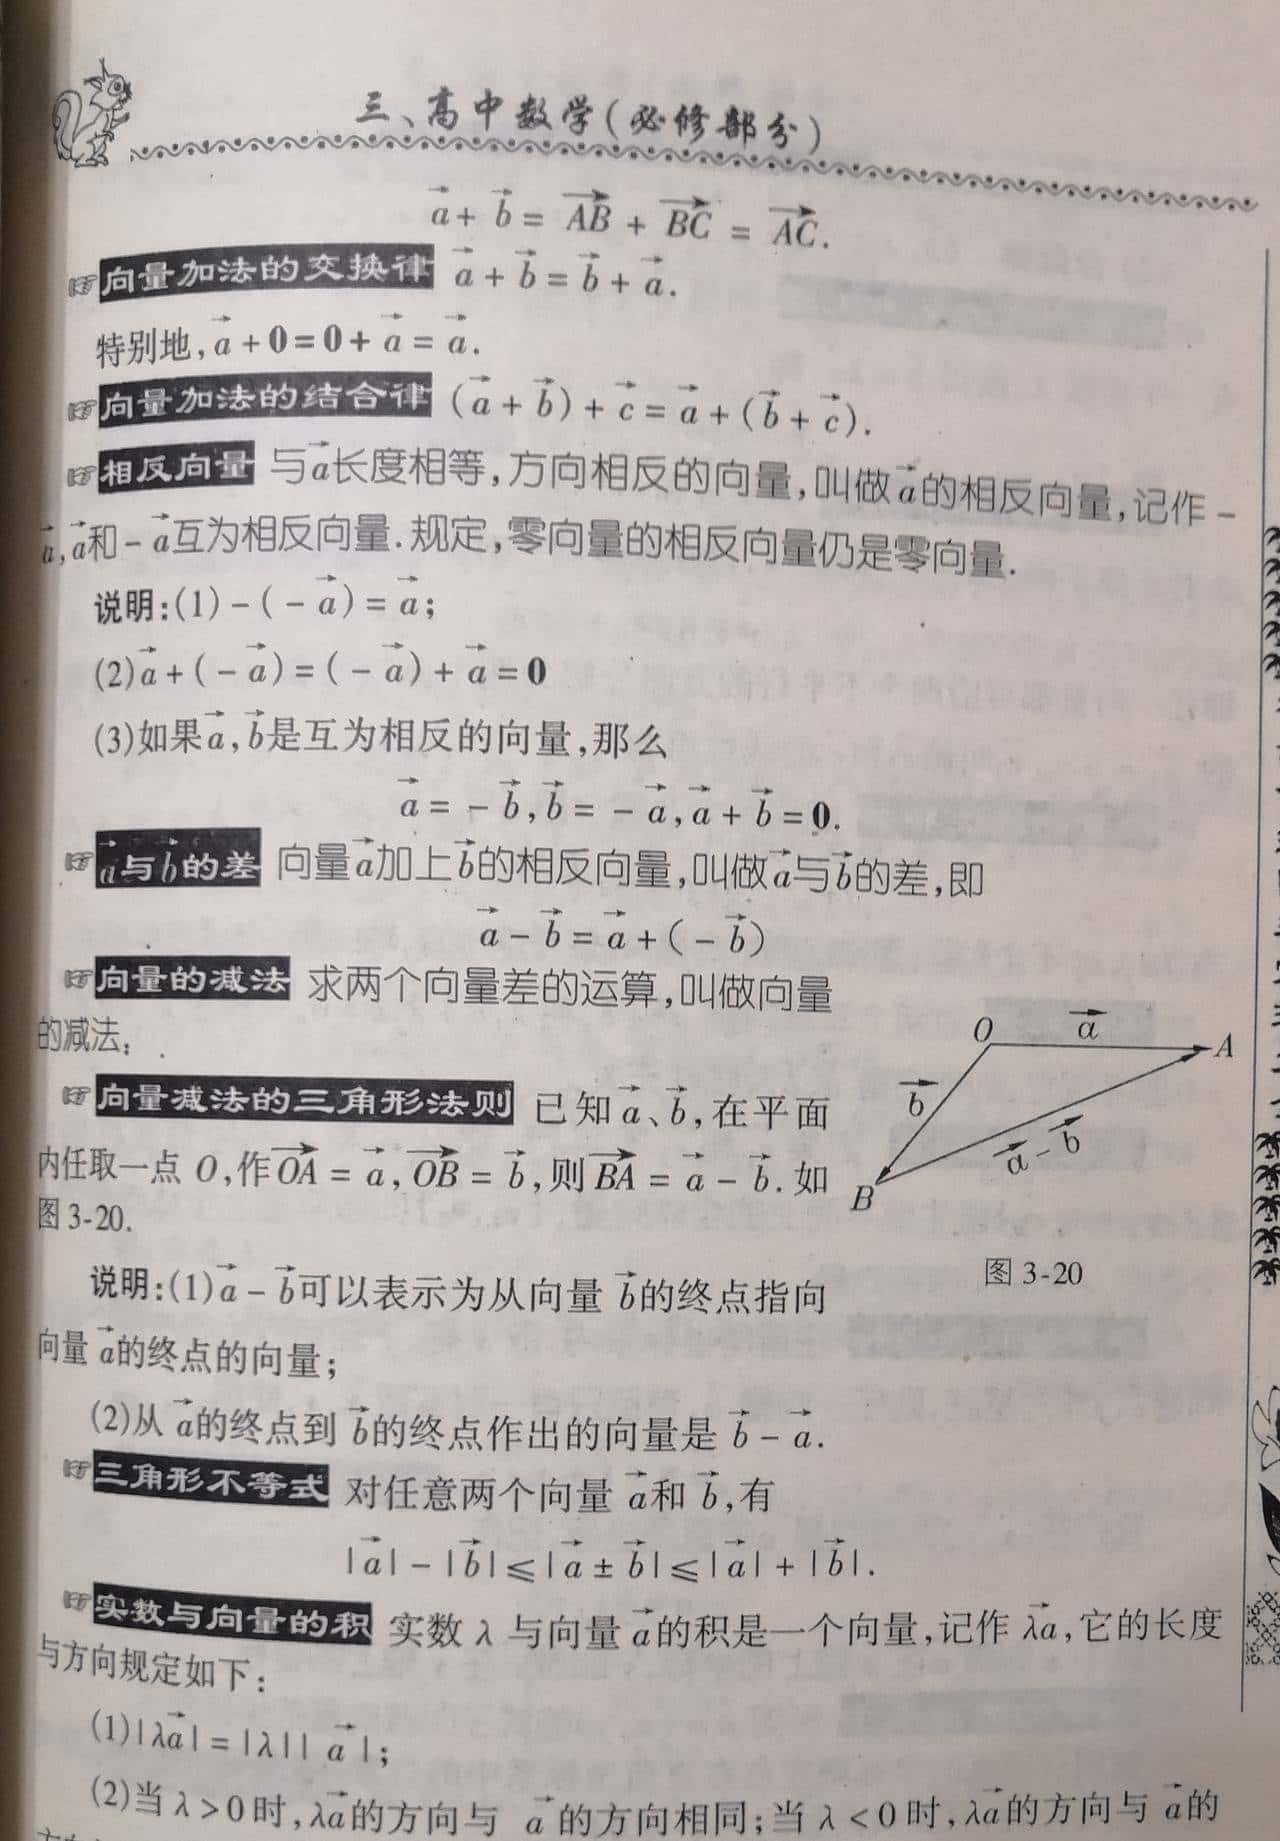 三、高中数学(必修部分)
a⃗ + b⃗ = AB⃗ + BC⃗ = AC⃗.
☞向量加法的交换律 a⃗ + b⃗ = b⃗ + a⃗.
特别地, a⃗ + 0 = 0 + a⃗ = a⃗.
☞向量加法的结合律 (a⃗ + b⃗) + c⃗ = a⃗ + (b⃗ + c⃗).
☞相反向量 与a⃗长度相等,方向相反的向量,叫做a⃗的相反向量,记作 -
a⃗, a⃗和 - a⃗互为相反向量.规定,零向量的相反向量仍是零向量.
说明:(1) - ( - a⃗) = a⃗;
(2)a⃗ + ( - a⃗) = ( - a⃗) + a⃗ = 0
(3)如果a⃗, b⃗是互为相反的向量,那么
a⃗ = - b⃗, b⃗ = - a⃗, a⃗ + b⃗ = 0.
☞a⃗与b⃗的差 向量a⃗加上b⃗的相反向量,叫做a⃗与b⃗的差,即
a⃗ - b⃗ = a⃗ + ( - b⃗)
☞向量的减法 求两个向量差的运算,叫做向量
的减法;
☞向量减法的三角形法则 已知a⃗、b⃗,在平面
内任取一点 O,作OA⃗ = a⃗, OB⃗ = b⃗,则BA⃗ = a⃗ - b⃗. 如
图 3-20.
O a⃗ A
b⃗
a⃗ - b⃗
B
图 3-20
说明:(1)a⃗ - b⃗可以表示为从向量 b⃗的终点指向
向量 a⃗的终点的向量;
(2)从 a⃗的终点到 b⃗的终点作出的向量是 b⃗ - a⃗.
☞三角形不等式 对任意两个向量 a⃗和 b⃗,有
|a⃗| - |b⃗| ⩽ |a⃗ ± b⃗| ⩽ |a⃗| + |b⃗|.
☞实数与向量的积 实数 λ 与向量 a⃗的积是一个向量,记作 λa⃗,它的长度
与方向规定如下:
(1)|λa⃗| = |λ||a⃗|;
(2)当 λ > 0 时, λa⃗的方向与 a⃗ 的方向相同;当 λ < 0 时, λa⃗的方向与 a⃗的